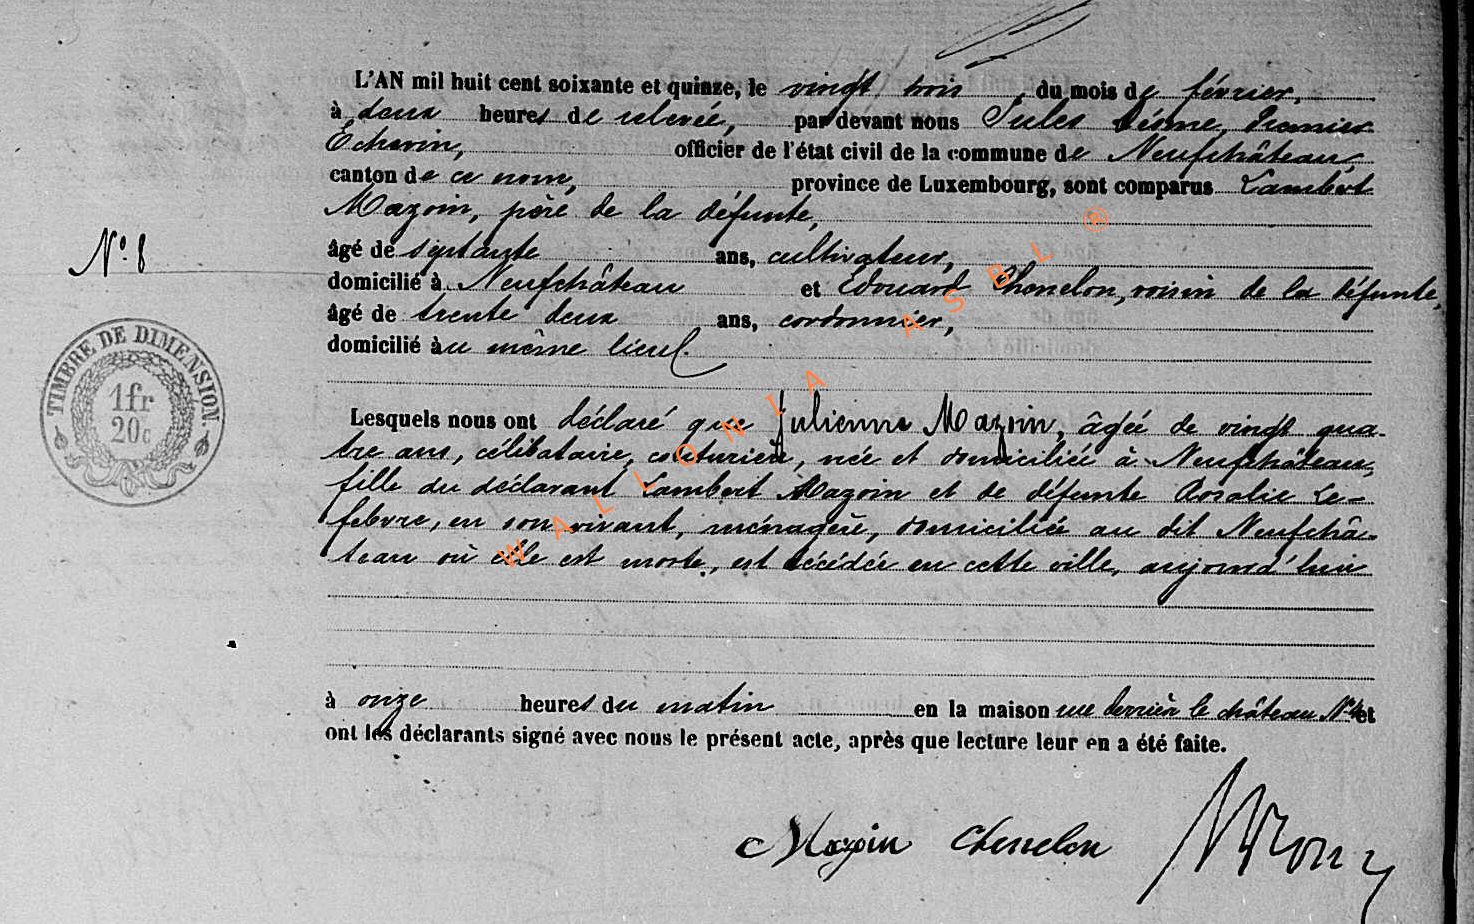 L'AN mil huit cent soixante et quinze, le vingt trois, du mois de février,
à deux heures de relevée, par devant nous Jules, Premier
Echevin, officier de l'état civil de la commune de Neufchâteau
canton de ce nom, province de Luxembourg, sont comparus Lambert
Mazoin, père de la défunte,
N° 8
âgé de septante ans, cultivateur,
domicilié à Neufchâteau et Edouard Chenelon, voisin de la défunte,
âgé de trente deux ans, cordonnier,
domicilié au même lieu.
TIMBRE DE DIMENSION.
1fr
20c
Lesquels nous ont déclaré que Julienne Mazoin, âgée de vingt qua-
tre ans, célibataire, couturière, née et domiciliée à Neufchâteau,
fille du déclarant Lambert Mazoin et de défunte Rosalie Le-
febvre, en son vivant, ménagère, domiciliée au dit Neufchâ-
teau où elle est morte, est décédée en cette ville, aujourd'hui
à onze heures du matin en la maison rue derrière le château N° et
ont les déclarants signé avec nous le présent acte, après que lecture leur en a été faite.
Mazoin Chenelon
WALLONIA ASBL ®